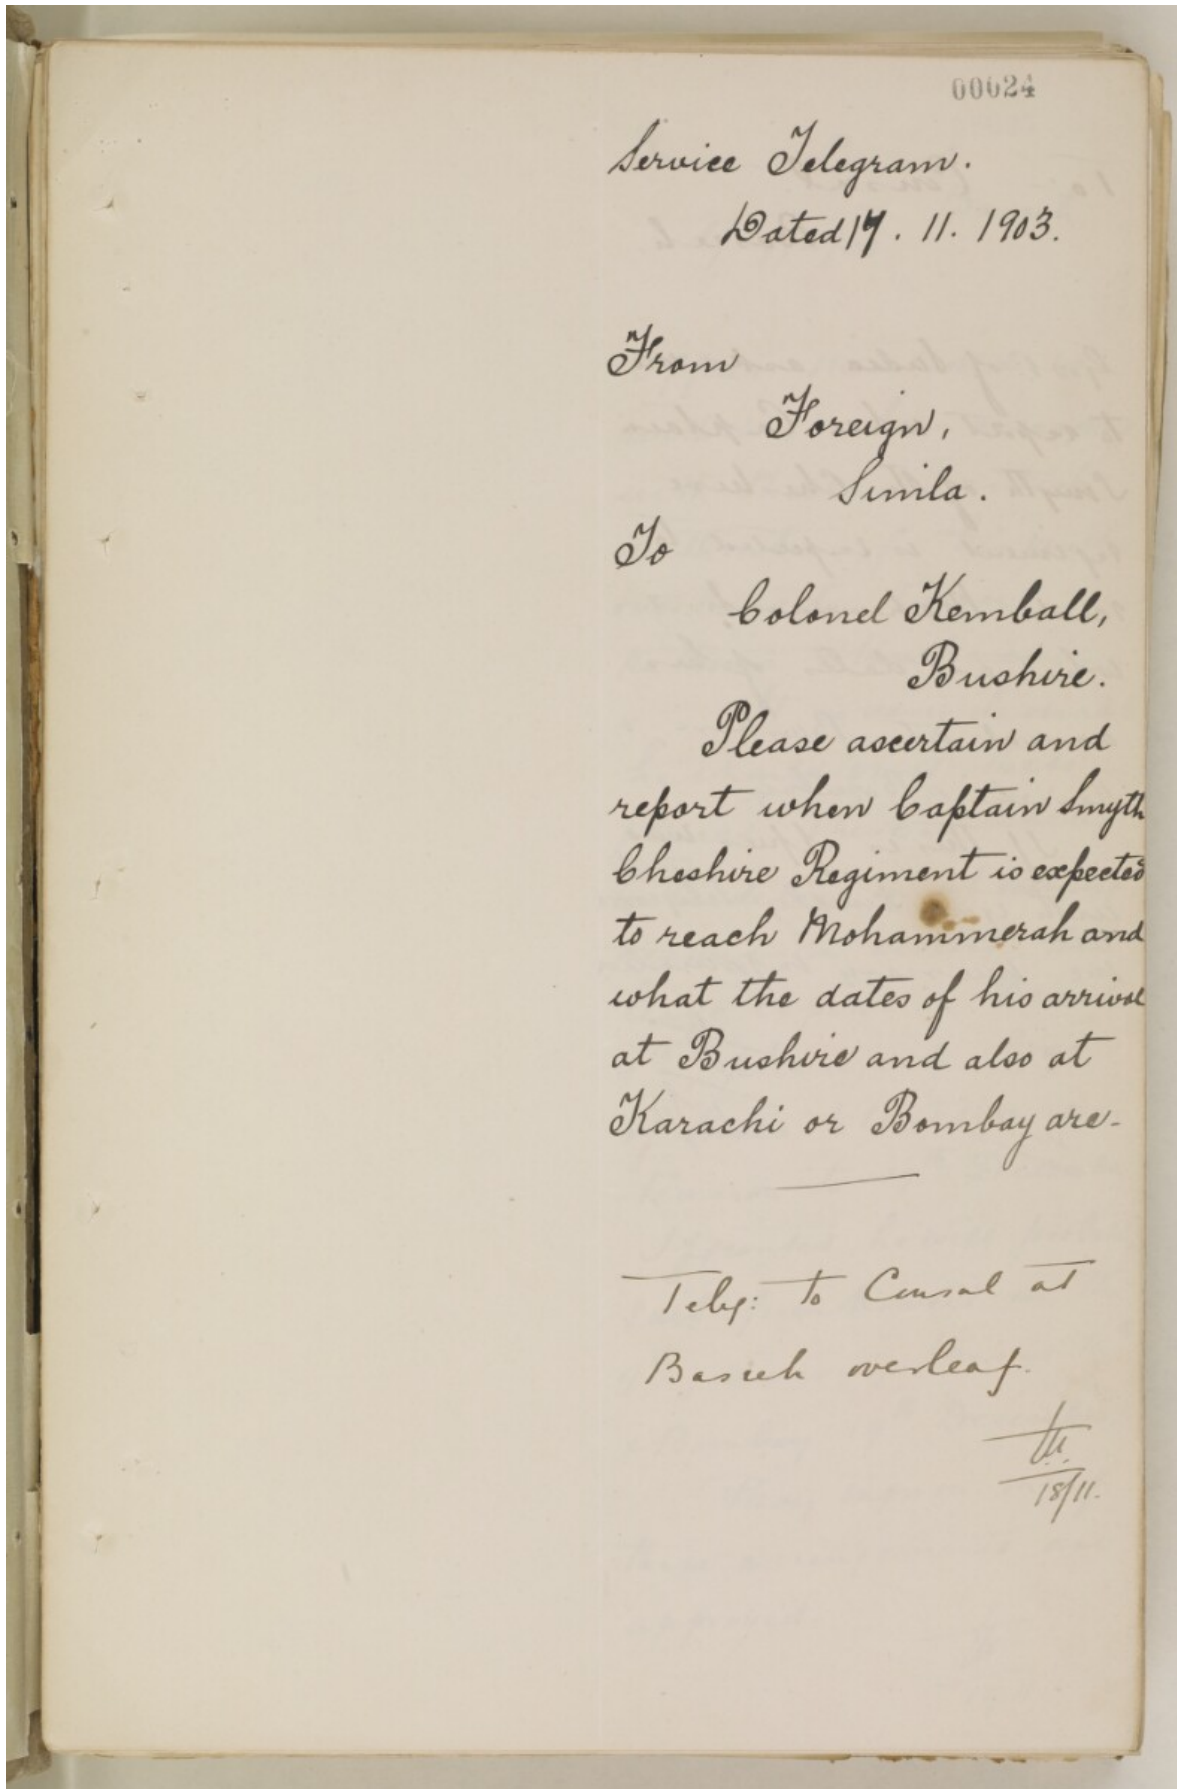 00024
Service Telegram.
Dated 17. 11. 1903.
From
Foreign,
Simla.
To
Colonel Kemball,
Bushire.
Please ascertain and
report when Captain Smyth
Cheshire Regiment is expected
to reach Mohammerah and
what the dates of his arrival
at Bushire and also at
Karachi or Bombay are -
Teleg: to Consul at
Basreh overleaf.
18/11.